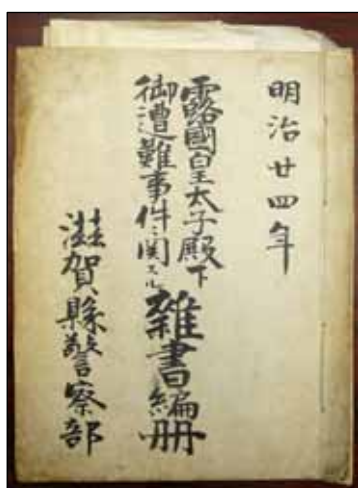 明治廿四年
露國皇太子殿下
御遭難事件ニ関スル雑書編册
滋賀縣警察部